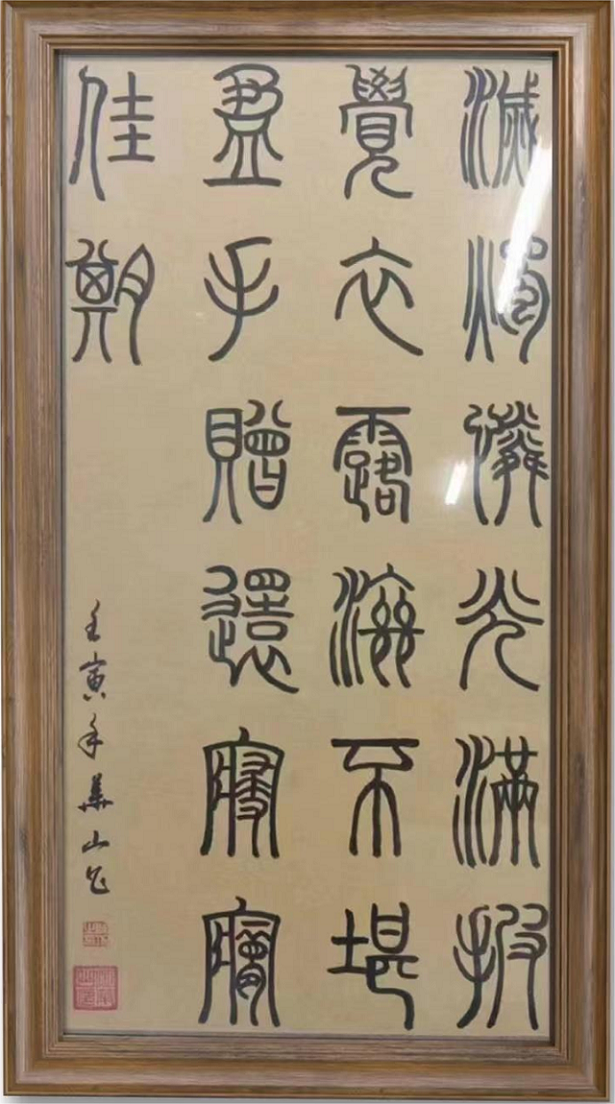 滅燭憐光滿披
覺衣露滋不堪
盈手贈還寢夢
佳期
壬寅年華山